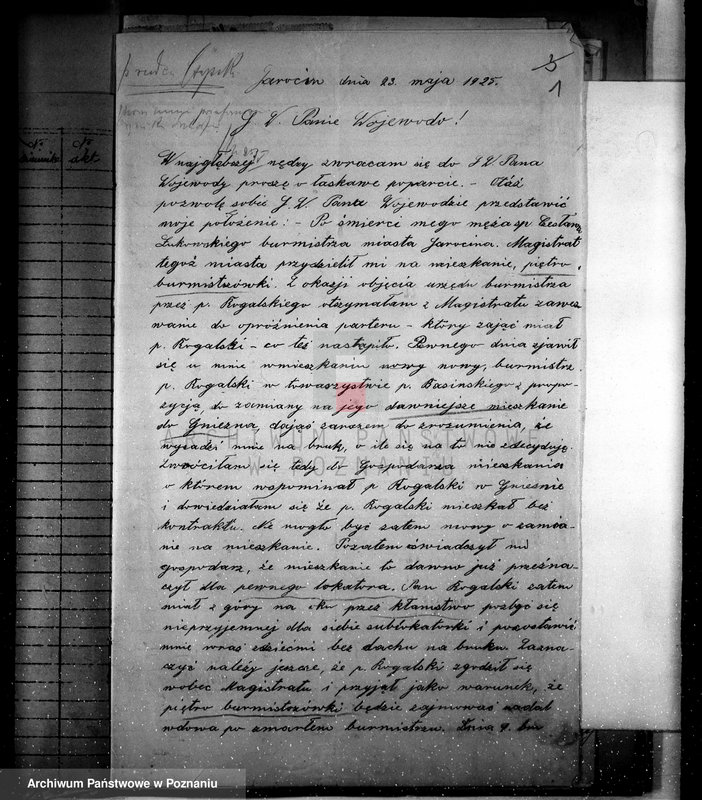 Jarocin dnia 23. maja 1925.
5
1
J. W. Panie Wojewodo!
W najgłębszej nędzy zwracam się do J. W. Pana
Wojewody proszę o łaskawe poparcie. – Otóż
pozwolę sobie J. W. Panu Wojewodzie przedstawić
moje położenie: – Po śmierci mego męża sp.
Łukowskiego burmistrza miasta Jarocina. Magistrat
tegoż miasta przydzielił mi na mieszkanie, piętro
burmistrzówki. Z okazji objęcia urzędu burmistrza
przez p. Rogalskiego otrzymałam z Magistratu zawez
wanie do opróżnienia parteru – który zająć miał
p. Rogalski – co też nastąpiło. Pewnego dnia zjawił
się u mnie w mieszkaniu nowy, burmistrz
p. Rogalski w towarzystwie p. Basińskiego z propo-
zycją, do zamiany na jego dawniejsze mieszkanie
do Gniezna, dając zarazem do zrozumienia, że
wysadzi mnie na bruk, o ile się na to nie zdecyduję.
Zwróciłam się tedy do Gospodarza mieszkania
o którem wspominał p. Rogalski w Gnieźnie
i dowiedziałam się że p. Rogalski mieszkał bez
kontraktu. Nie mogło być zatem mowy o zamia-
nie na mieszkanie. Pozatem oświadczył mi
gospodarz, że mieszkanie to dawno już przezna-
czył dla pewnego lokatora. Pan Rogalski zatem
miał z góry na oku przez kłamstwo pozbyć się
nieprzyjemnej dla siebie sublokatorki i pozostawić
mnie wraz z dziećmi bez dachu na bruku. Zazna-
czyć należy jeszcze, że p. Rogalski zgodził się
wobec Magistratu i przyjął jako warunek, że
piętro burmistrzówki będzie zajmować nadal
wdowa po zmarłem burmistrzu. Dnia 9. bm
akt
ARCHIWUM PAŃSTWOWE
W POZNANIU
Archiwum Państwowe w Poznaniu